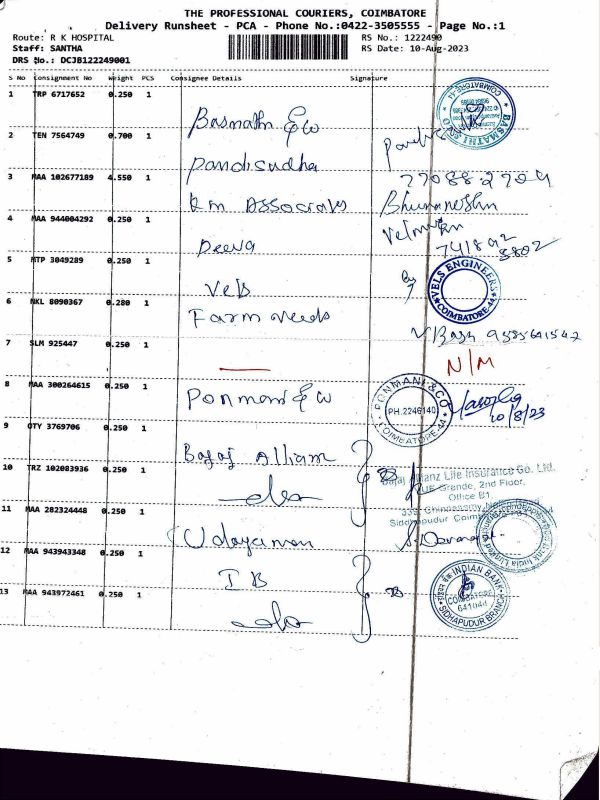 THE PROFESSIONAL COURIERS, COIMBATORE
Delivery Runsheet - PCA - Phone No.:0422-3505555 - Page No.:1
Route: R K HOSPITAL RS No.: 1222490
Staff: SANTHA RS Date: 10-Aug-2023
DRS No.: DCJB122249001
S No Consignment No Weight PCS Consignee Details Signature
1 TRP 6717652 0.250 1
Basmathi & co
2 TEN 7564749 0.700 1
Pandisudha
3 MAA 102677189 4.550 1 7708827209
Km Associates Bhuvaneshn
4 MAA 944004292 0.250 1
Deeva 741892
5802
5 MTP 3049289 0.250 1
Vels VELS ENGINEERS
COIMBATORE-44
6 NKL 8090367 0.280 1
Farm needs
7 SLM 925447 0.250 1 9585641542
N/M
8 MAA 300264615 0.250 1
Ponmani & co PONMANI & CO
PH.2246140
COIMBATORE-44
10/8/23
9 OTY 3769706 0.250 1
Bajaj Allianz
10 TRZ 102083936 0.250 1
Bajaj Allianz Life Insurance Co. Ltd.
2nd Floor,
Office B1,
Siddhapudur
11 MAA 282324448 0.250 1
Udayaman
12 MAA 943943348 0.250 1
IB INDIAN BANK
COIMBATORE
641044
SIDHAPUDUR BRANCH
13 MAA 943972461 0.250 1